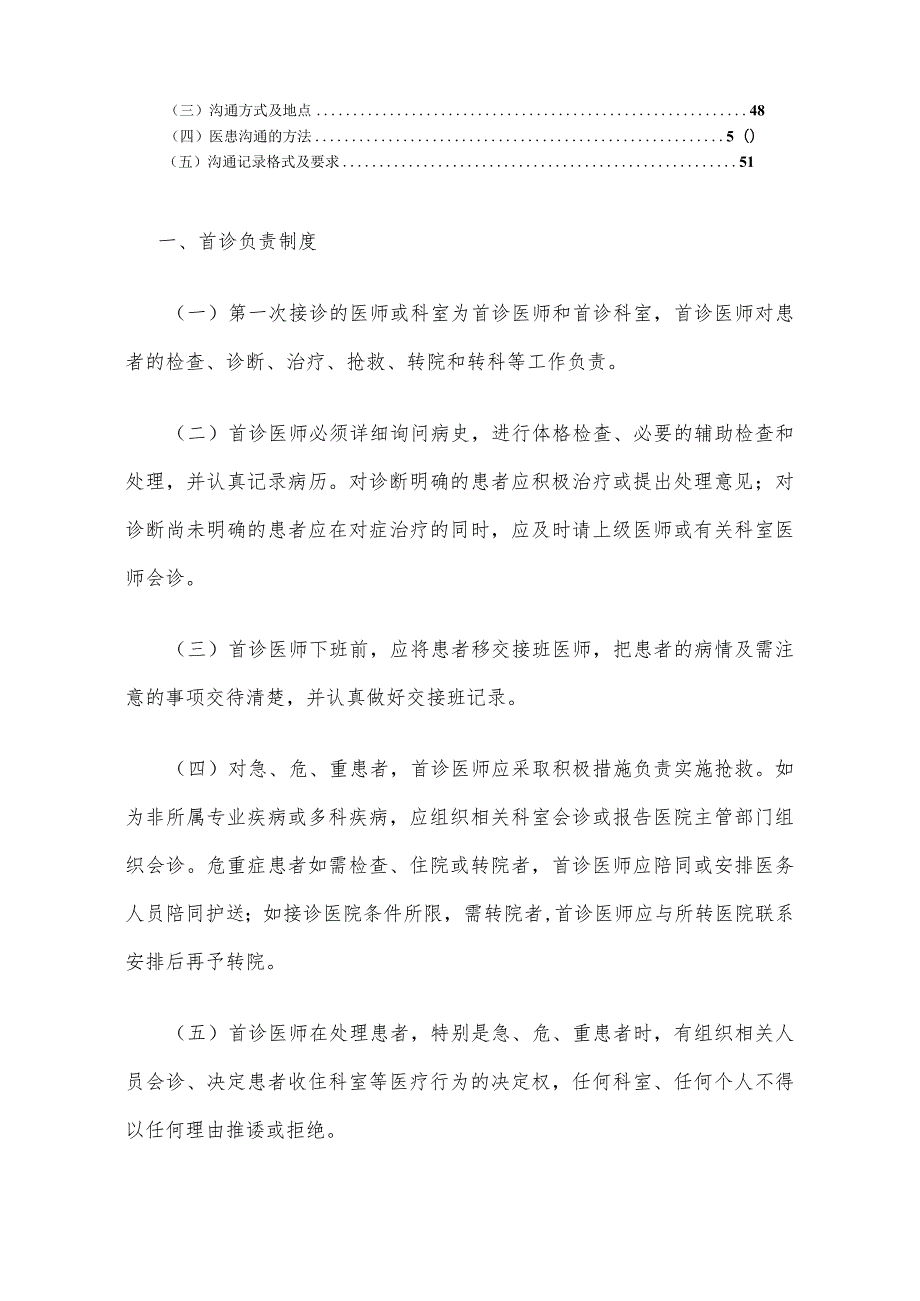 （三）沟通方式及地点..........................................................48
（四）医患沟通的方法........................................................5 ()
（五）沟通记录格式及要求.....................................................51
一、首诊负责制度
（一）第一次接诊的医师或科室为首诊医师和首诊科室，首诊医师对患
者的检查、诊断、治疗、抢救、转院和转科等工作负责。
（二）首诊医师必须详细询问病史，进行体格检查、必要的辅助检查和
处理，并认真记录病历。对诊断明确的患者应积极治疗或提出处理意见；对
诊断尚未明确的患者应在对症治疗的同时，应及时请上级医师或有关科室医
师会诊。
（三）首诊医师下班前，应将患者移交接班医师，把患者的病情及需注
意的事项交待清楚，并认真做好交接班记录。
（四）对急、危、重患者，首诊医师应采取积极措施负责实施抢救。如
为非所属专业疾病或多科疾病，应组织相关科室会诊或报告医院主管部门组
织会诊。危重症患者如需检查、住院或转院者，首诊医师应陪同或安排医务
人员陪同护送；如接诊医院条件所限，需转院者,首诊医师应与所转医院联系
安排后再予转院。
（五）首诊医师在处理患者，特别是急、危、重患者时，有组织相关人
员会诊、决定患者收住科室等医疗行为的决定权，任何科室、任何个人不得
以任何理由推诿或拒绝。